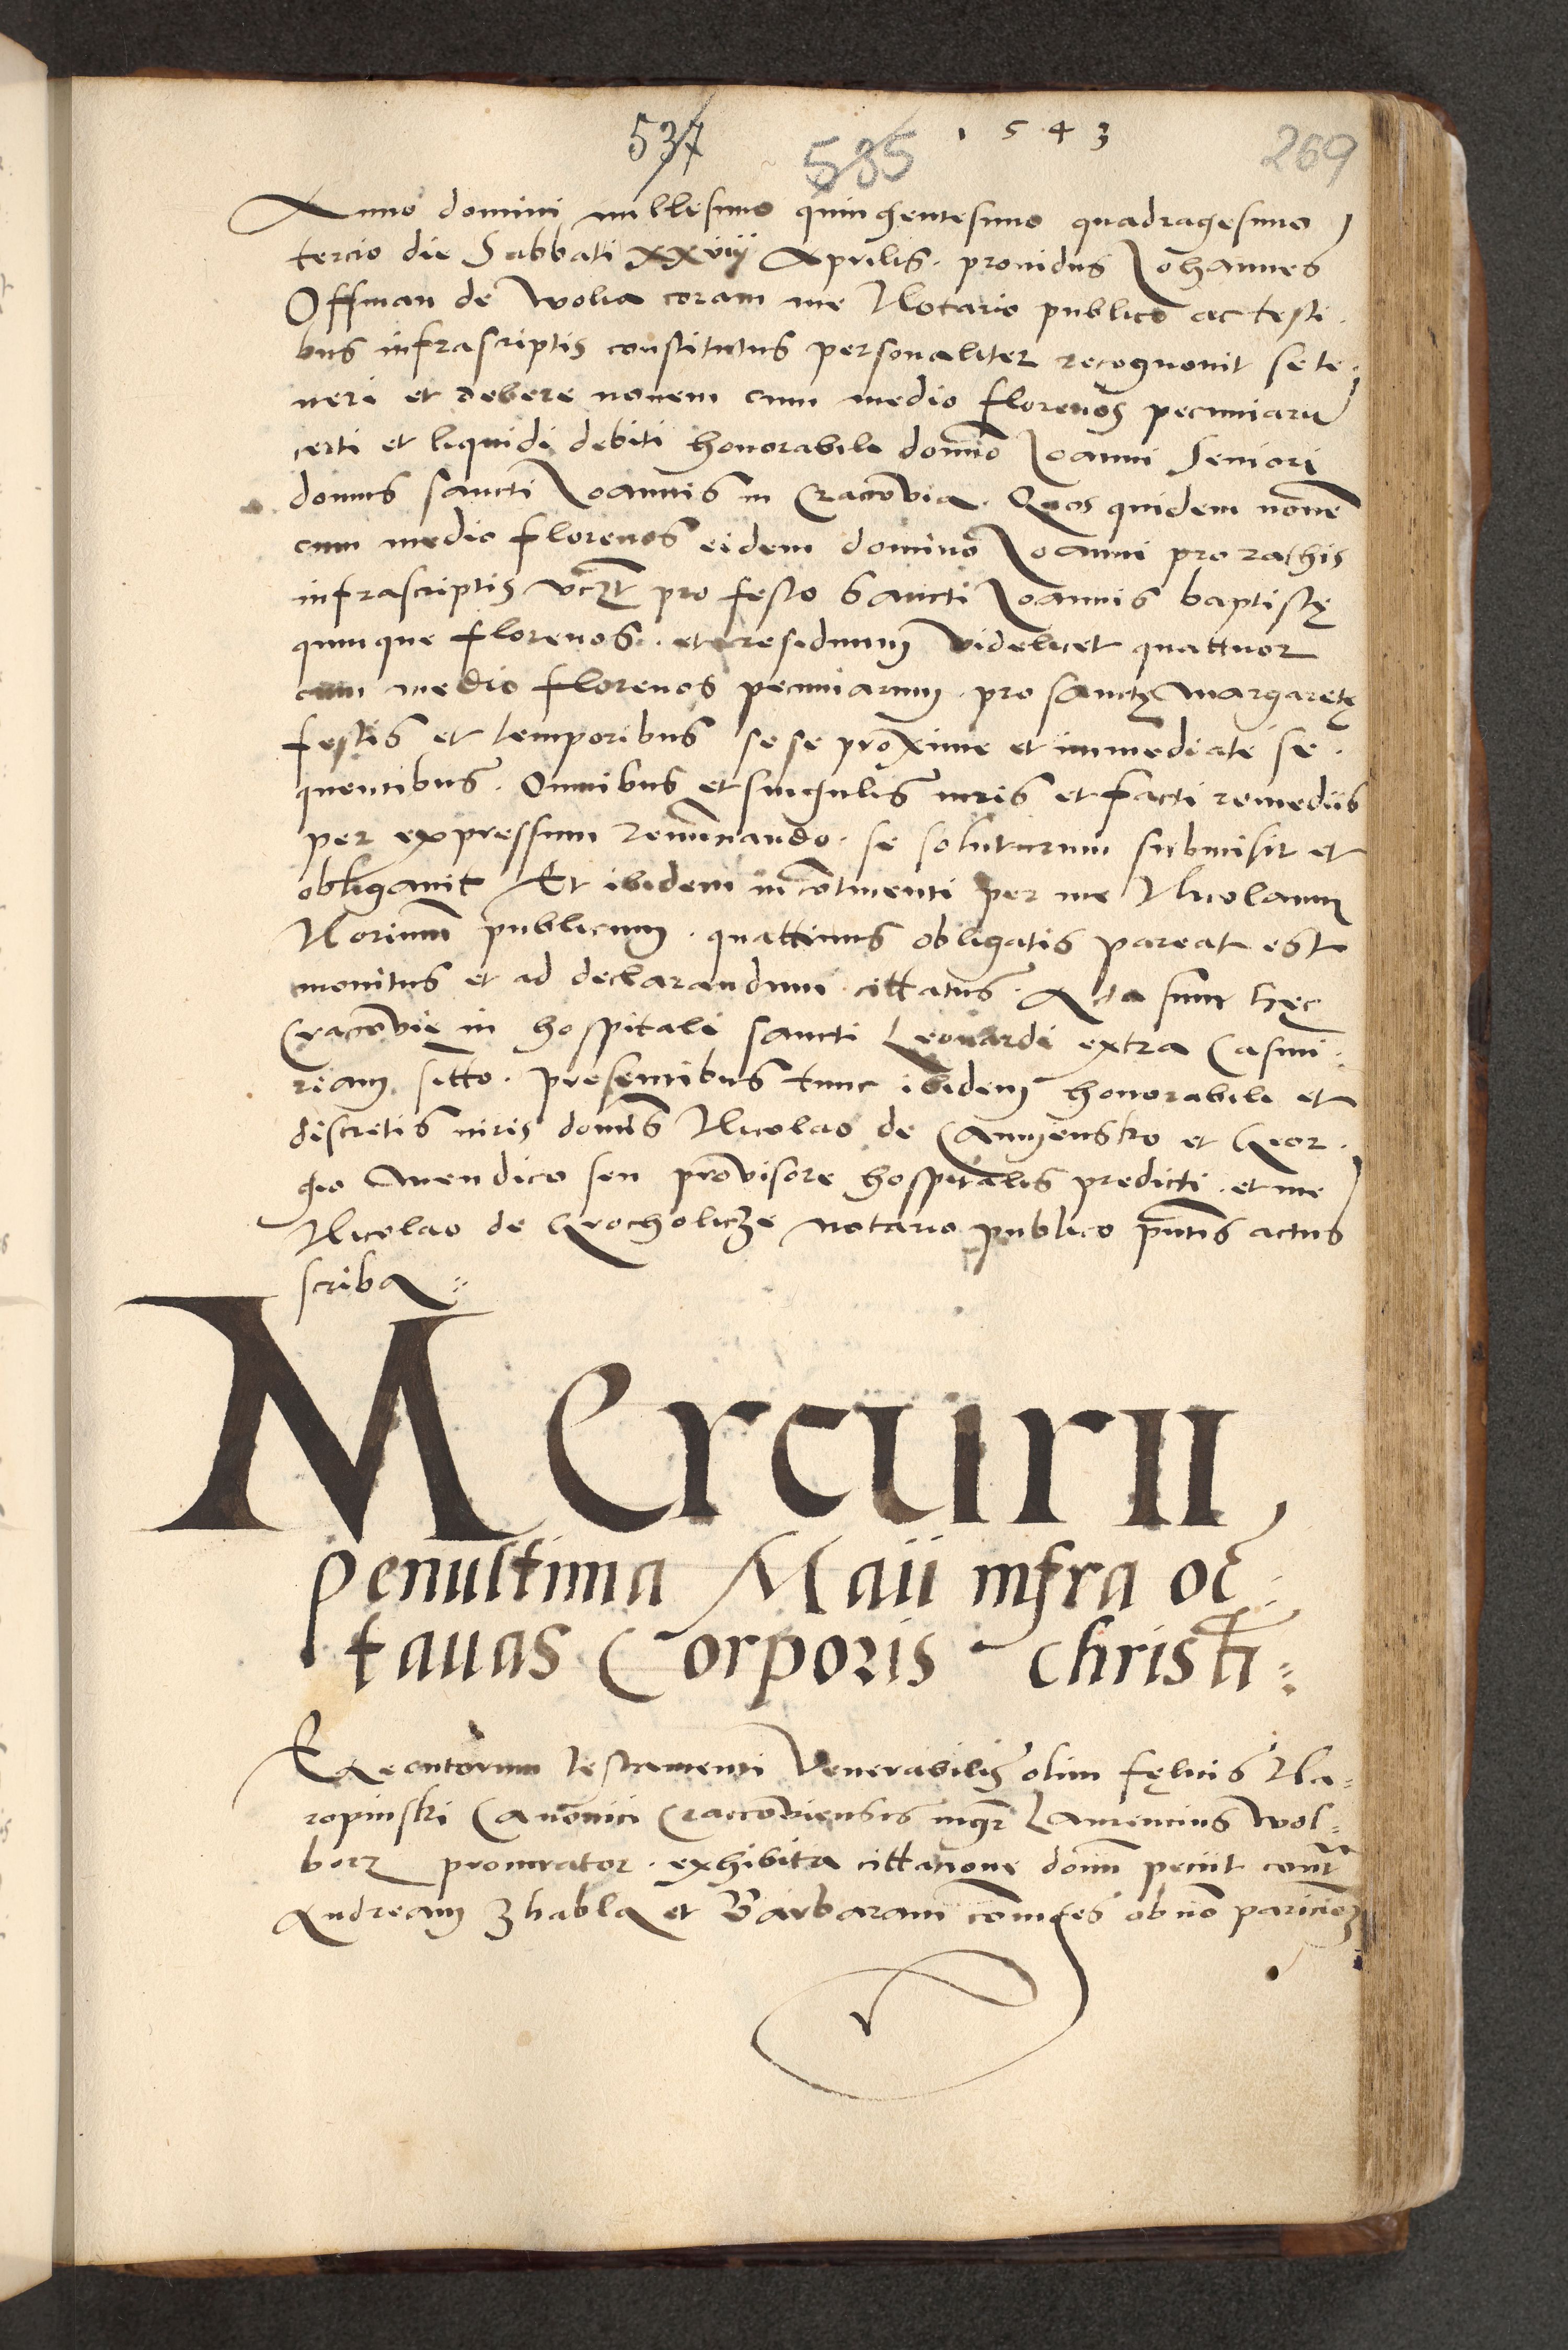 537 535 1 5 4 3 269
Anno domini millesimo quingentesimo quadragesimo
tercio die Sabbati XXviij Aprilis. prouidus Johannes
Offman de Wolia coram me Notario publico ac testi-
bus infrascriptis constitutus personaliter recognouit se te-
neri et debere nouem cum medio florenos pecuniarū
certi et liquidi debiti honorabili domīo Joanni Seniori
domus sancti Joannis in Cracovia. Quos quidem nouē
cum medio florenos eidem domino Joanni pro rathis
infrascriptis vczt pro festo Sancti Joannis baptistę
quinque florenos. et residuum videlicet quattuor
cum medio florenos pecuniarum. pro sanctę Margaretę
festis et temporibus se se proxime et immediate se-
quentibus. Omnibus et singulis iuris et facti remediis
per expressum renunciando. se soluturum submisit et
obligauit Et ibidem incontinenti per me Nicolaum
Norium publicum. quattinus obligatis pareat est
monitus et ad declarandum cittatus. Acta sunt hęc
Cracovię in hospitali sancti Leonardi extra Casimi-
riam sitto. presentibus tunc ibidem honorabili et
discretis viris domīs Nicolao de Camyensko et Geor-
gio mendico seu provisore hospitalis predicti. et me
Nicolao de Grocholicze notario publico pn̄tis actus
scriba
MErcurii
penultima Maii infra oc-
tauas Corporis christi
Executorum testamenti Venerabilis olim fęlicis Na-
ropinski Canonici Cracoviensis mgr̄ Laurencius Wol-
borz procurator. exhibita cittatione domī peciit cont̄
Andream Zhabla et Barbaram com̄tes ob nō paricioēʒ